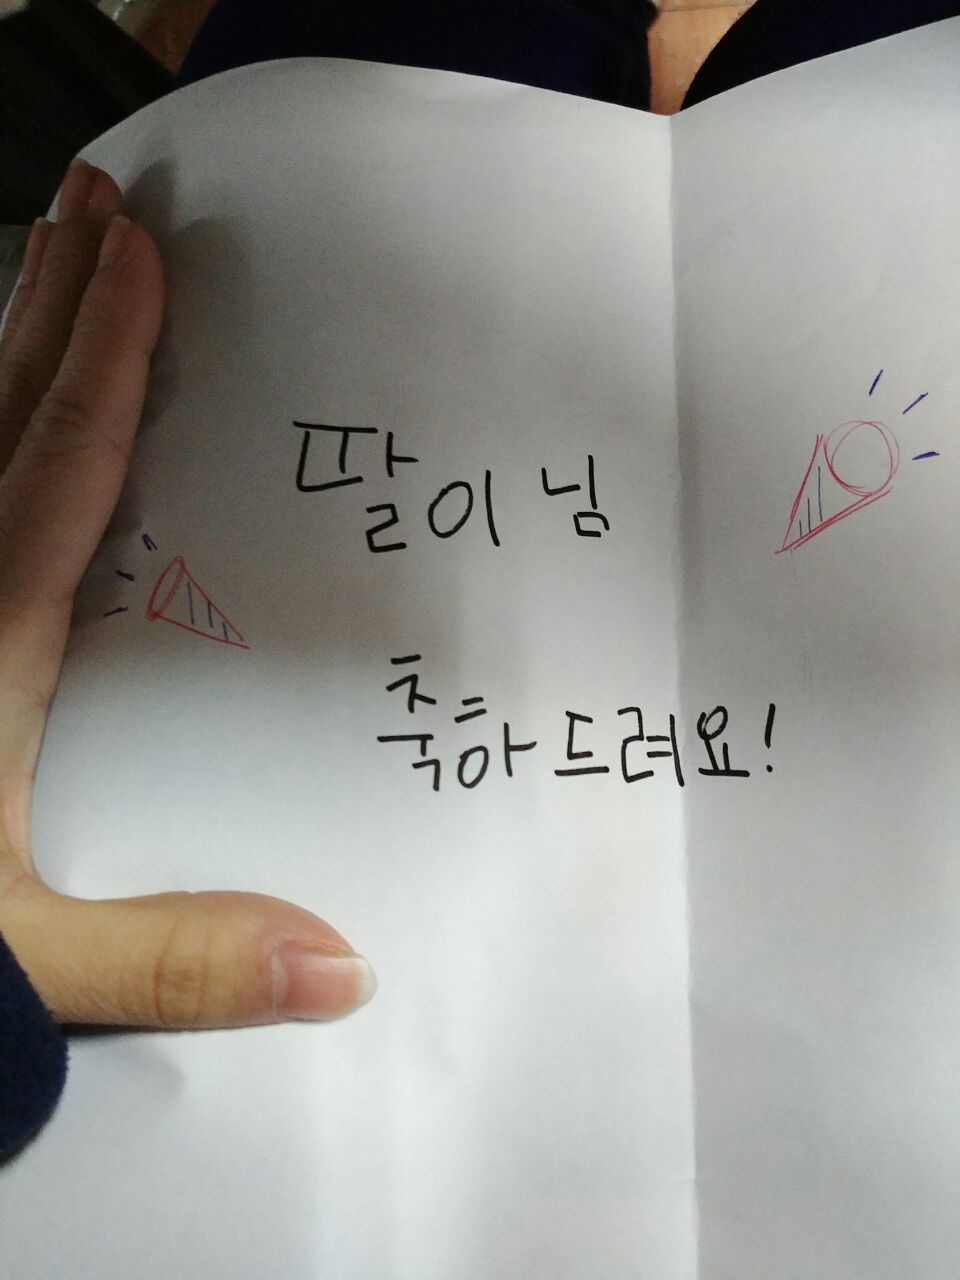 딸이님
축하드려요!